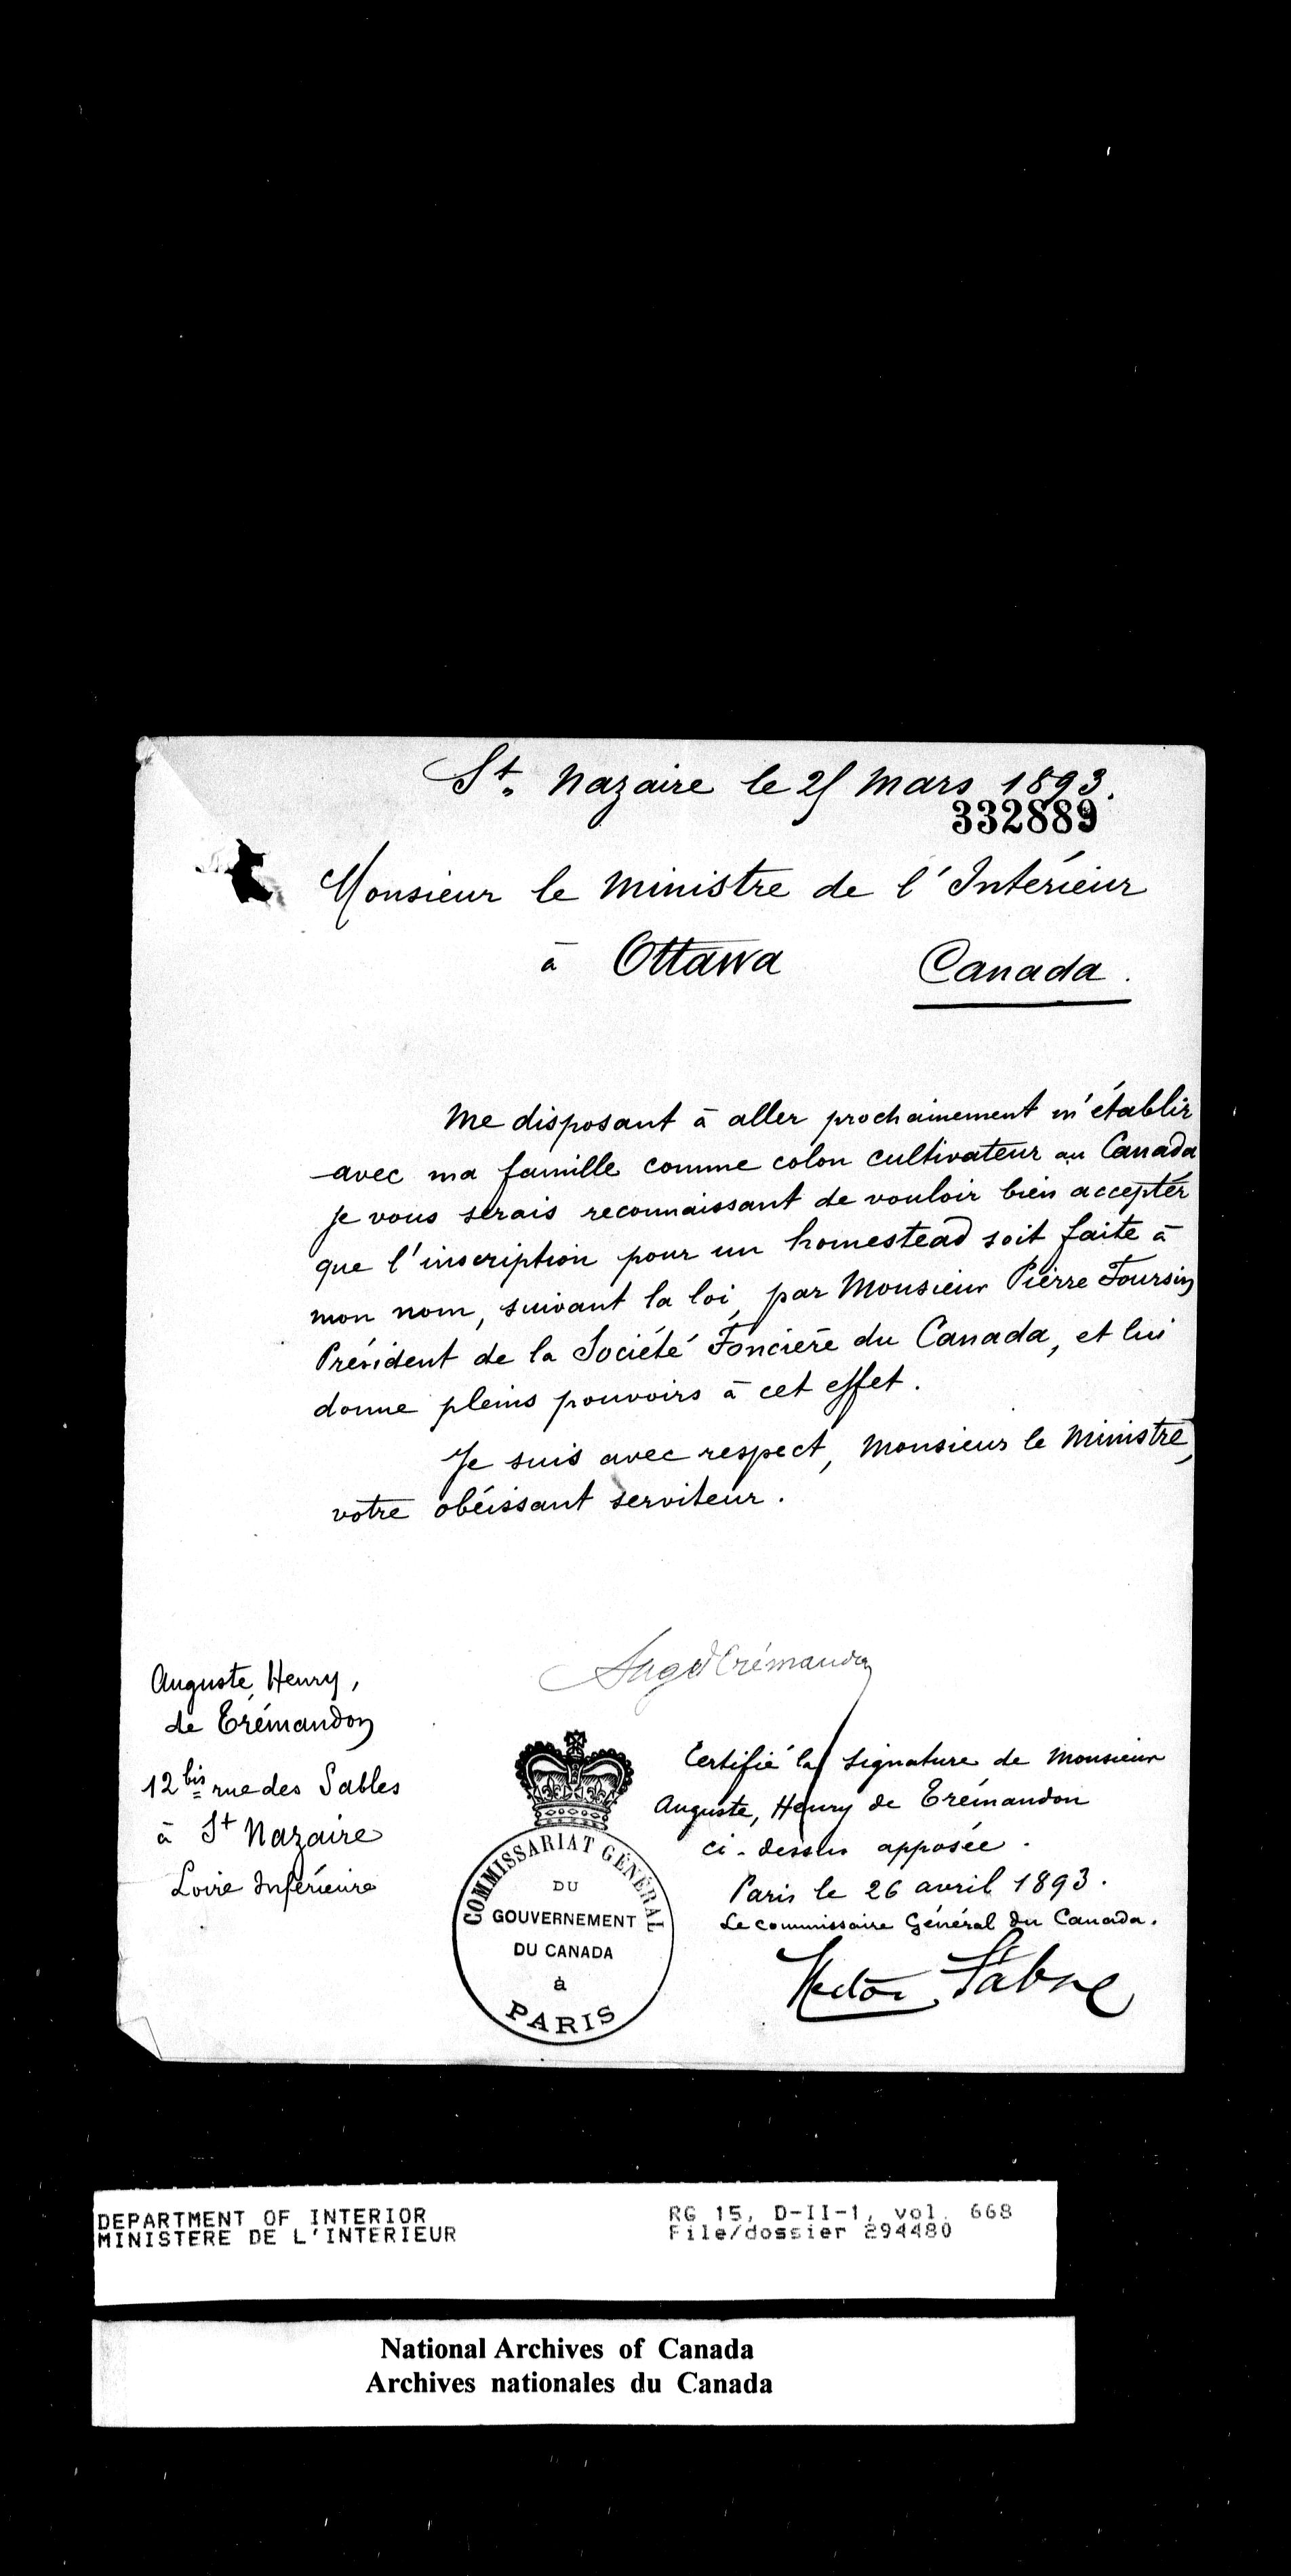 St. Nazaire le 25 Mars 1893.
332889
Monsieur le Ministre de l'Intérieur
à Ottawa Canada.
Me disposant à aller prochainement m'établir
avec ma famille comme colon cultivateur au Canada
je vous serais reconnaissant de vouloir bien accepter
que l'inscription pour un homestead soit faite à
mon nom, suivant la loi, par Monsieur Pierre Foursin
Président de la Société Foncière du Canada, et lui
donne pleins pouvoirs à cet effet.
Je suis avec respect, Monsieur le Ministre,
votre obéissant serviteur.
Aug de Trémaudan
Auguste, Henry,
de Trémaudon
12 bis rue des Sables
à St Nazaire
Loire Inférieure
COMMISSARIAT GÉNÉRAL
DU
GOUVERNEMENT
DU CANADA
à
PARIS
Certifié la signature de Monsieur
Auguste, Henry de Trémaudon
ci-dessus apposée.
Paris le 26 avril 1893.
Le commissaire Général du Canada.
Hector Fabre
DEPARTMENT OF INTERIOR
MINISTERE DE L'INTERIEUR
RG 15, D-II-1, vol. 668
File/dossier 294480
National Archives of Canada
Archives nationales du Canada